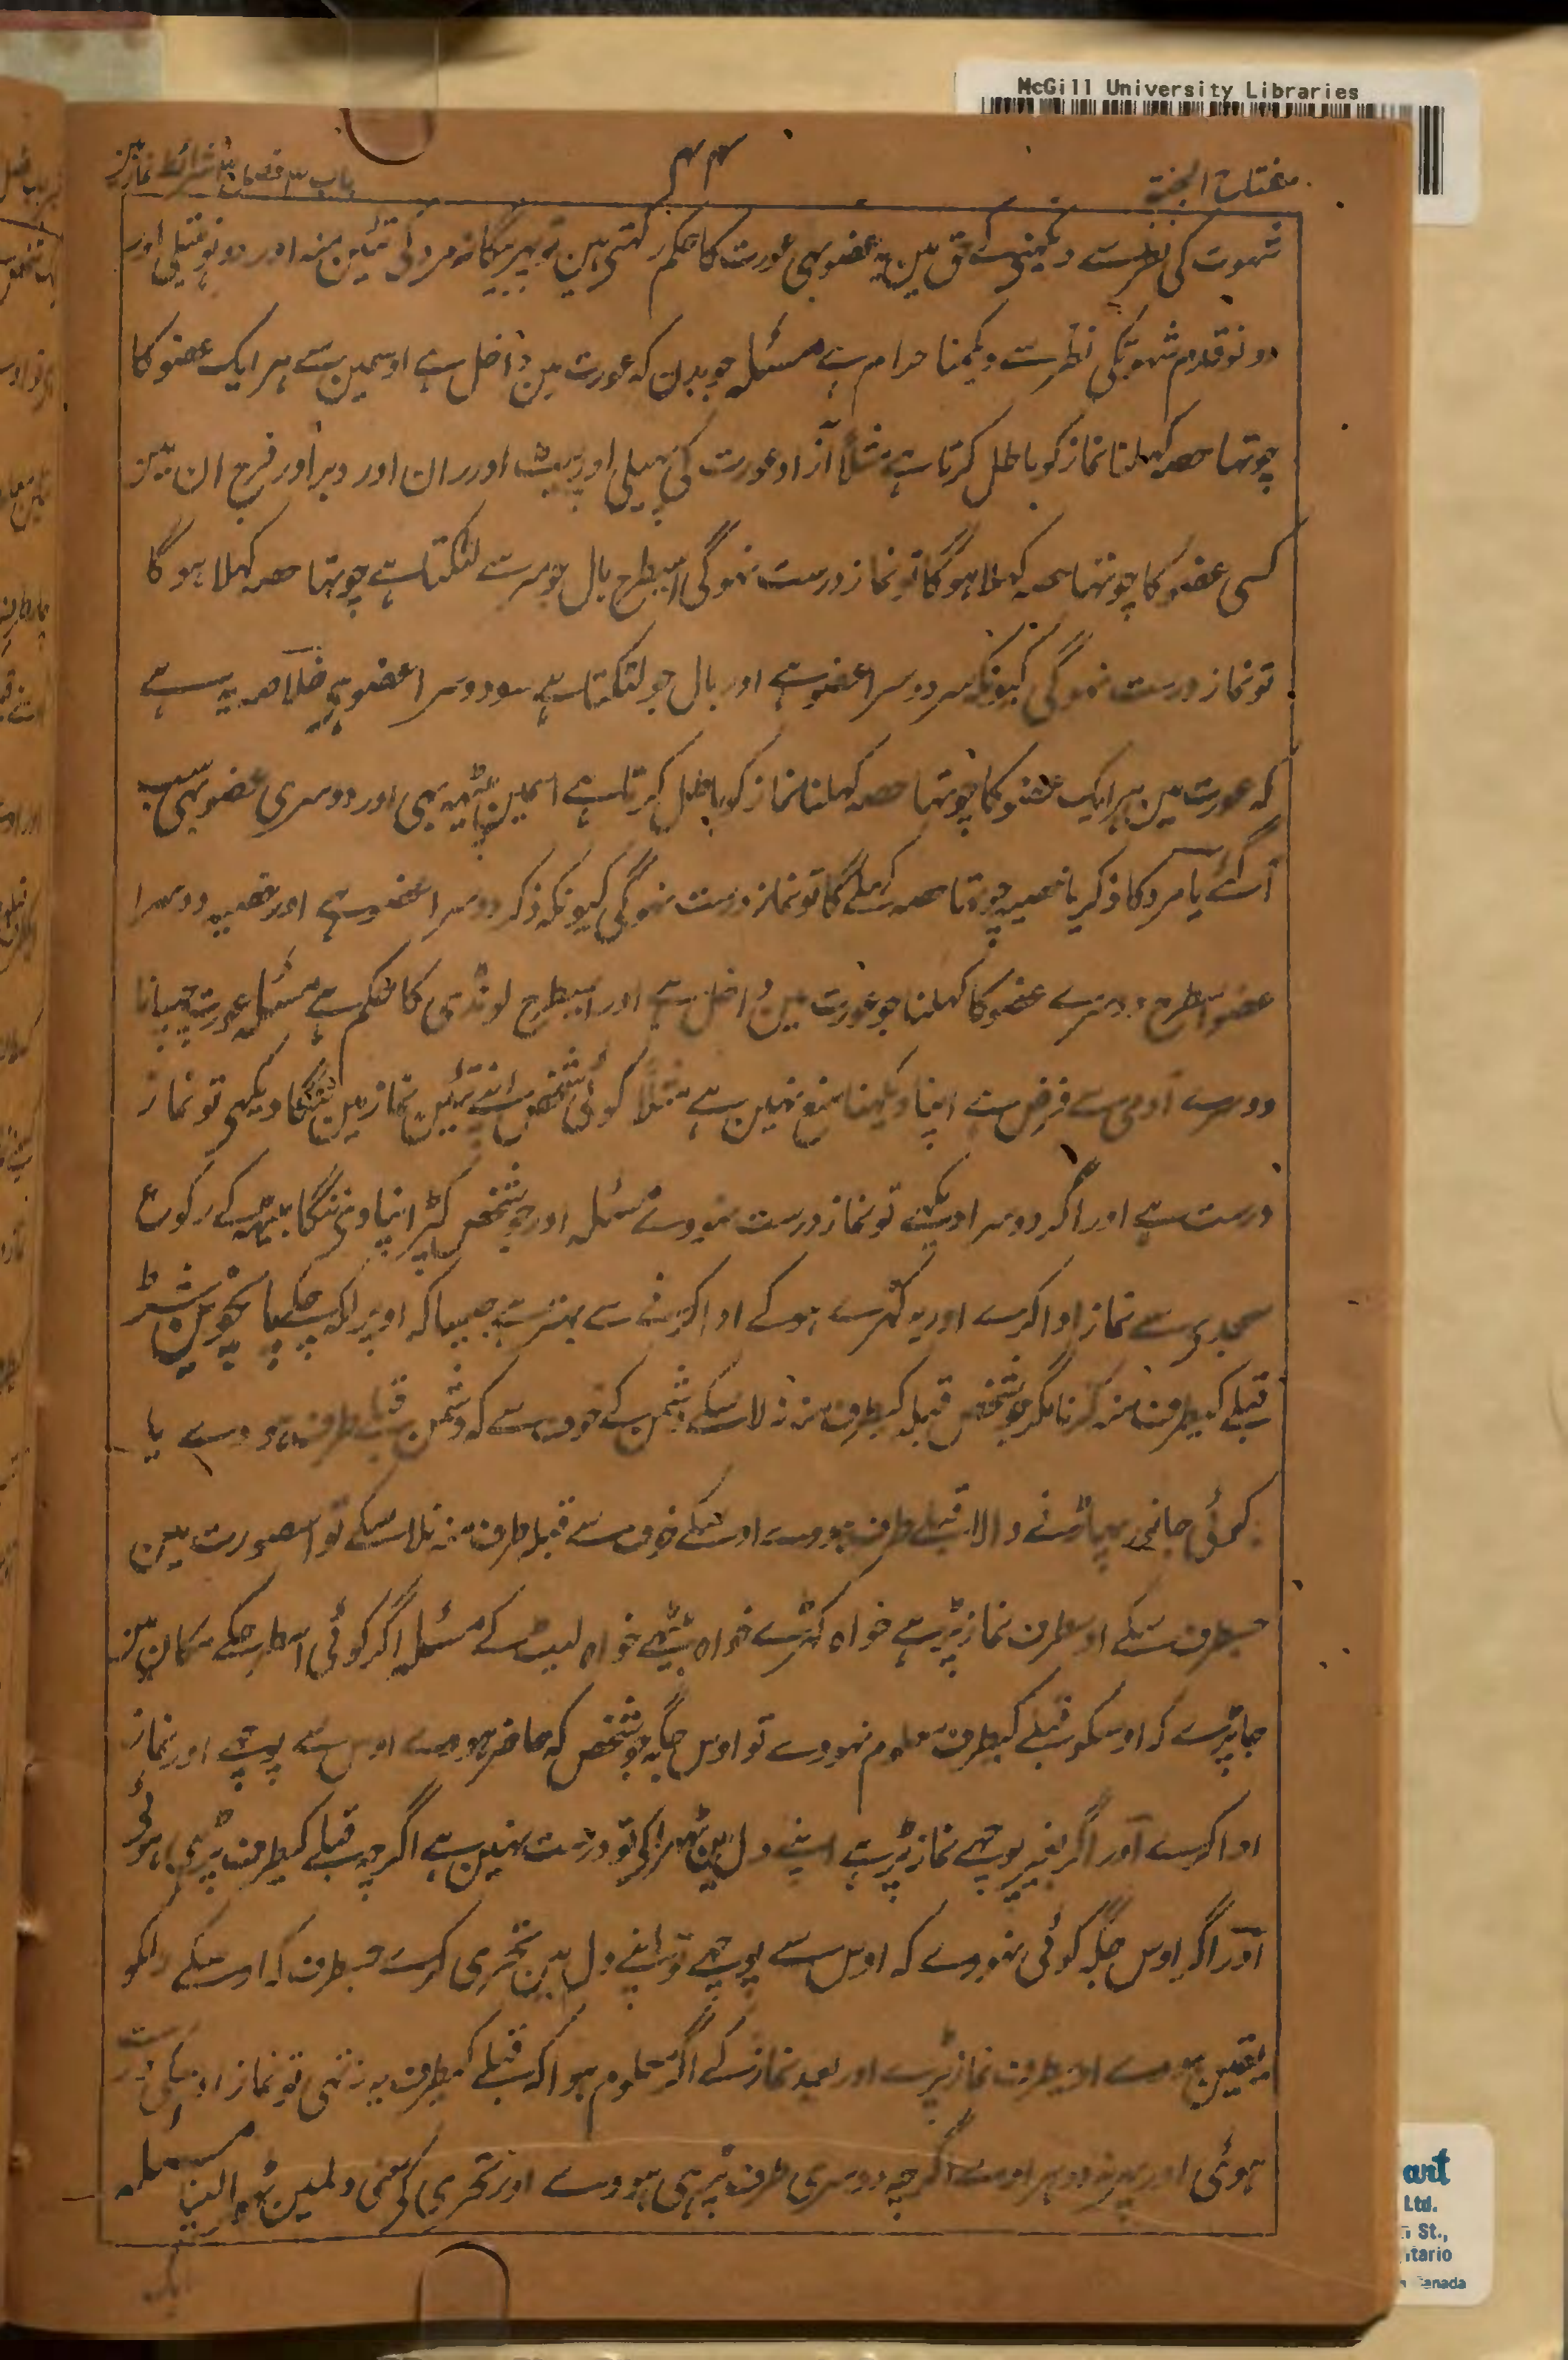 McGill University Libraries
مفتاح الجنۃ
۴۴
باب ۳ فصل شرائط نماز مین
شہوت کی نظرسے دیکہنیکے حق مین یہ عضو بہی عورت کا حکم رکہتی ہین تو بہر بیگانہ مرد کی تئین منہ اور دونو ہتیلی اور
دونو قدم شہوتکی نظرسے دیکہنا حرام ہے مسئلہ جو بدن کہ عورت مین داخل ہے اوسمین سے ہر ایک عضو کا
چوتہا حصہ کہلنا نماز کو باطل کرتا ہے مثلاً آزاد عورت کی پہلی اور پیٹ اور ران اور دبر اور فرج ان مین
کسی عضو کا چوتہا حصہ کہلا ہوگا تو نماز درست نہوگی اسیطرح بال جو سرسے لٹکتا ہے چوتہا حصہ کہلا ہوگا
تو نماز درست نہوگی کیونکہ سر دوسرا عضو ہے اور بال جو لٹکتا ہے سو دوسرا عضو ہی خلاصہ یہ ہے
کہ عورت مین ہر ایک عضو کا چوتہا حصہ کہلنا نماز کو باطل کرتا ہے اسمین پیٹہہ بہی اور دوسری عضو بہی سب
آگئے یا مرد کا ذکر یا خصیہ چوتہا حصہ کہلے گا تو نماز درست نہوگی کیونکہ ذکر دوسرا عضو ہے اور خصیہ دوسرا
عضو اسطرح دوسرے عضو کا کہلنا جو عورت مین داخل ہے اور اسیطرح لونڈی کا حکم ہے مسئلہ عورت چہپانا
دوسرے آدمی سے فرض ہے اپنا دیکہنا منع نہین ہے مثلاً کوئی شخص اپنے تئین نماز مین ننگا دیکہی تو نماز
درست ہے اور اگر دوسرا دیکہے تو نماز درست نہووے مسئلہ اور جو شخص کپڑا نپاوی ننگا بیٹہہ کے رکوع
سجدیسے نماز ادا کرے اور یہ کہڑے ہوکے ادا کرنے سے بہتر ہے جیسا کہ اوپر لکہہ چکے پانچوین شرط
قبلے کیطرف منہ کرنا مگر جو شخص قبلہ کیطرف منہ نہ لاسکے دشمن کے خوف سے کہ دشمن قبلے طرف ہووے یا
کوئی جانور پہاڑنے والا قبلے طرف ہووے اوسکے خوف سے قبلہ طرف منہ نلاسکے تو اسصورت مین
جسطرف سکے اوسطرف نماز پڑہے خواہ کہڑے خواہ بیٹہے خواہ لیٹ کے مسئلہ اگر کوئی اسطرحکے مکان مین
جاپڑے کہ اوسکو قبلے کیطرف معلوم نہووے تو اوس جگہ جو شخص کہ حاضر ہووے اوس سے پوچہے اور نماز
ادا کرے اور اگر بغیر پوچہے نماز پڑہے اپنے دل مین ٹہراکی تو درست نہین ہے اگرچہ قبلے کیطرف پڑہی ہوئی
اور اگر اوس جگہ کوئی نہووے کہ اوس سے پوچہے تو اپنے دل مین تحری کرے جسطرف کہ اوسکے دلکو
یقین ہووے اوسطرف نماز پڑہے اور بعد نماز کے اگر معلوم ہوا کہ قبلے کیطرف یہ نہ تہی تو نماز اوسکی درست
ہوئی اور پہر نہ دوہراوے اگرچہ دوسری طرف پڑہی ہووے اور تحری کی معنی دلمین ٹہرالینا مسئلہ
art
Ltd.
St.,
tario
Canada